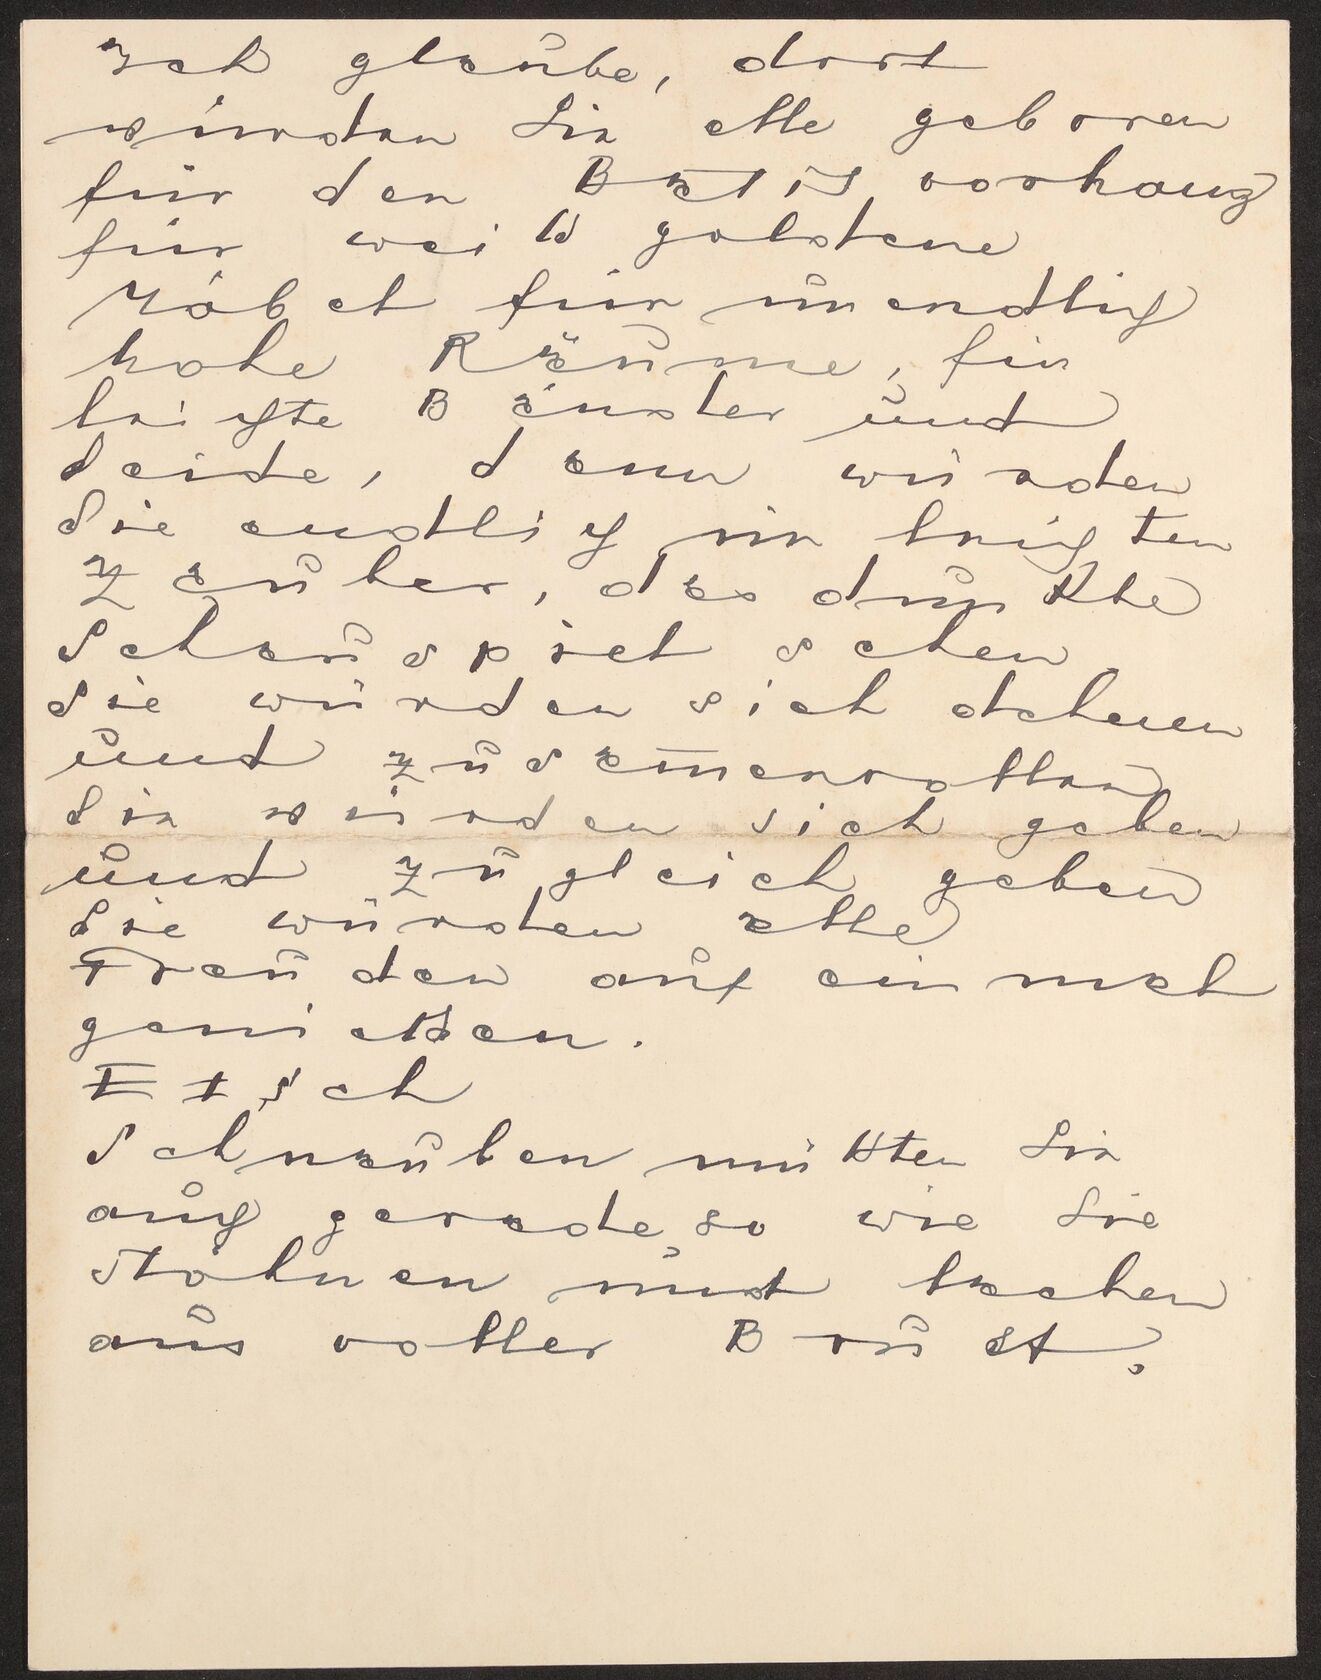 Ich glaube, dort
würden Sie alle geboren
für den Batist vorhang
für weiß goldene
Möbel für unendlich
hohe Räume, für
leichte Bänder und
Seide, dann würden
Sie endlich im leichten
Zauber, das dunkle
Schauspiel sehen
Sie würden sich dehnen
und zusammenrollen
Sie würden sich geben
und zugleich geben
Sie würden alle
Freuden auf ein mal
genießen.
Schnauben müßten Sie
auch gerade so wie Sie
stöhnen und lachen
aus voller Brust.